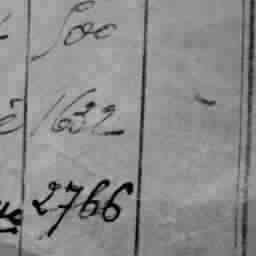 500
è 1632
2766